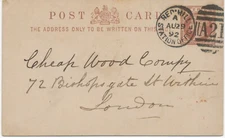 POST CARD
THE ADDRESS ONLY TO BE WRITTEN ON THIS
RED HILL
A
AU 28
92
STATION OFFICE
A21
Cheap Wood Compy
72 Bishopsgate St Within
London